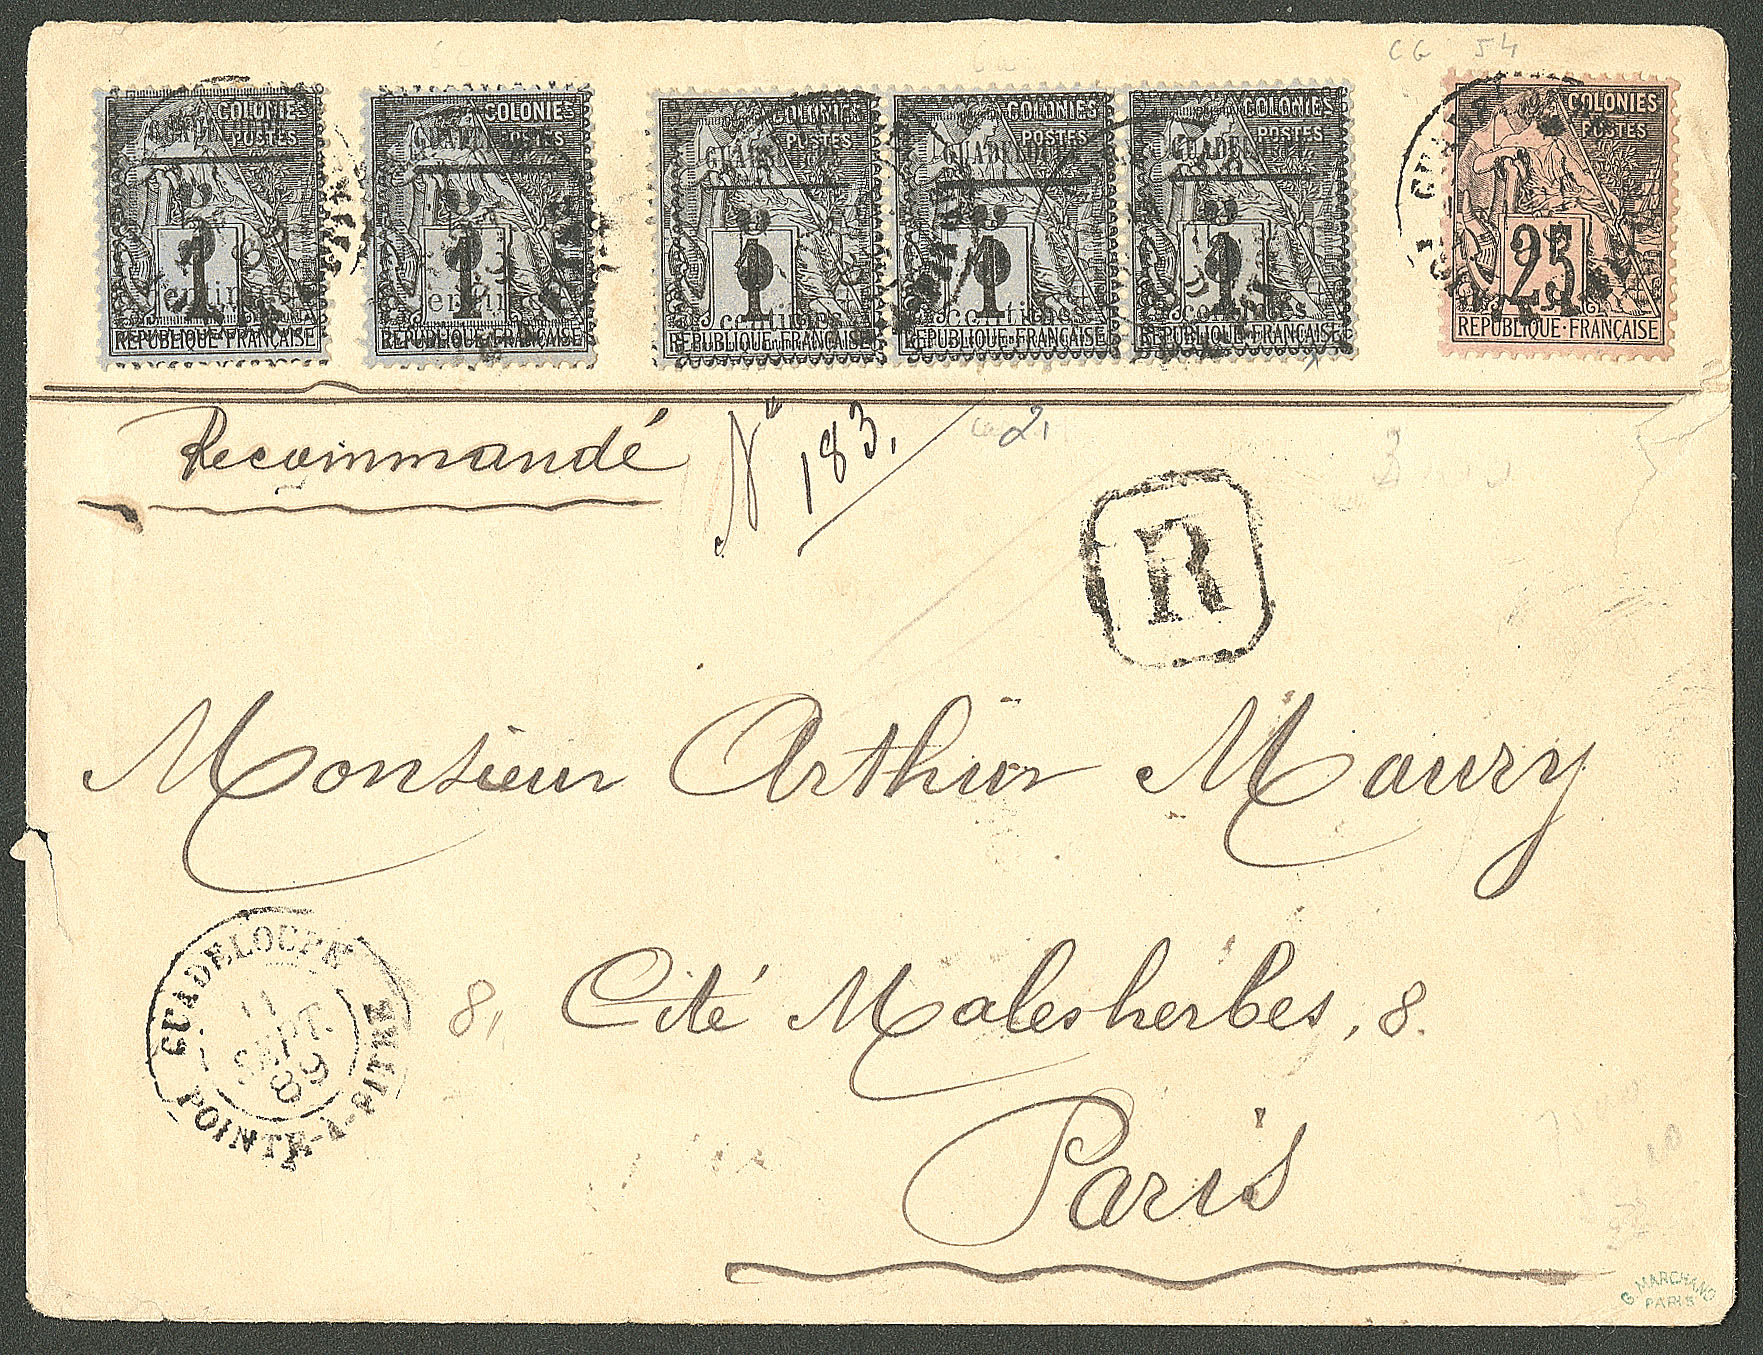 CG 54
COLONIES POSTES
COLONIES POSTES
COLONIES POSTES
COLONIES POSTES
COLONIES POSTES
COLONIES POSTES
GUADELOUPE
5
1
centimes
REPUBLIQUE·FRANÇAISE
GUADELOUPE
5
1
centimes
REPUBLIQUE·FRANÇAISE
GUADELOUPE
5
1
centimes
REPUBLIQUE·FRANÇAISE
GUADELOUPE
5
1
centimes
REPUBLIQUE·FRANÇAISE
GUADELOUPE
5
1
centimes
REPUBLIQUE·FRANÇAISE
25
REPUBLIQUE·FRANÇAISE
Recommandé
No 183.
2,
R
Monsieur Arthur Maury
8, Cité Malesherbes, 8.
Paris
GUADELOUPE
11
SEPT.
89
POINTE-A-PITRE
G. MARCHAND
PARIS